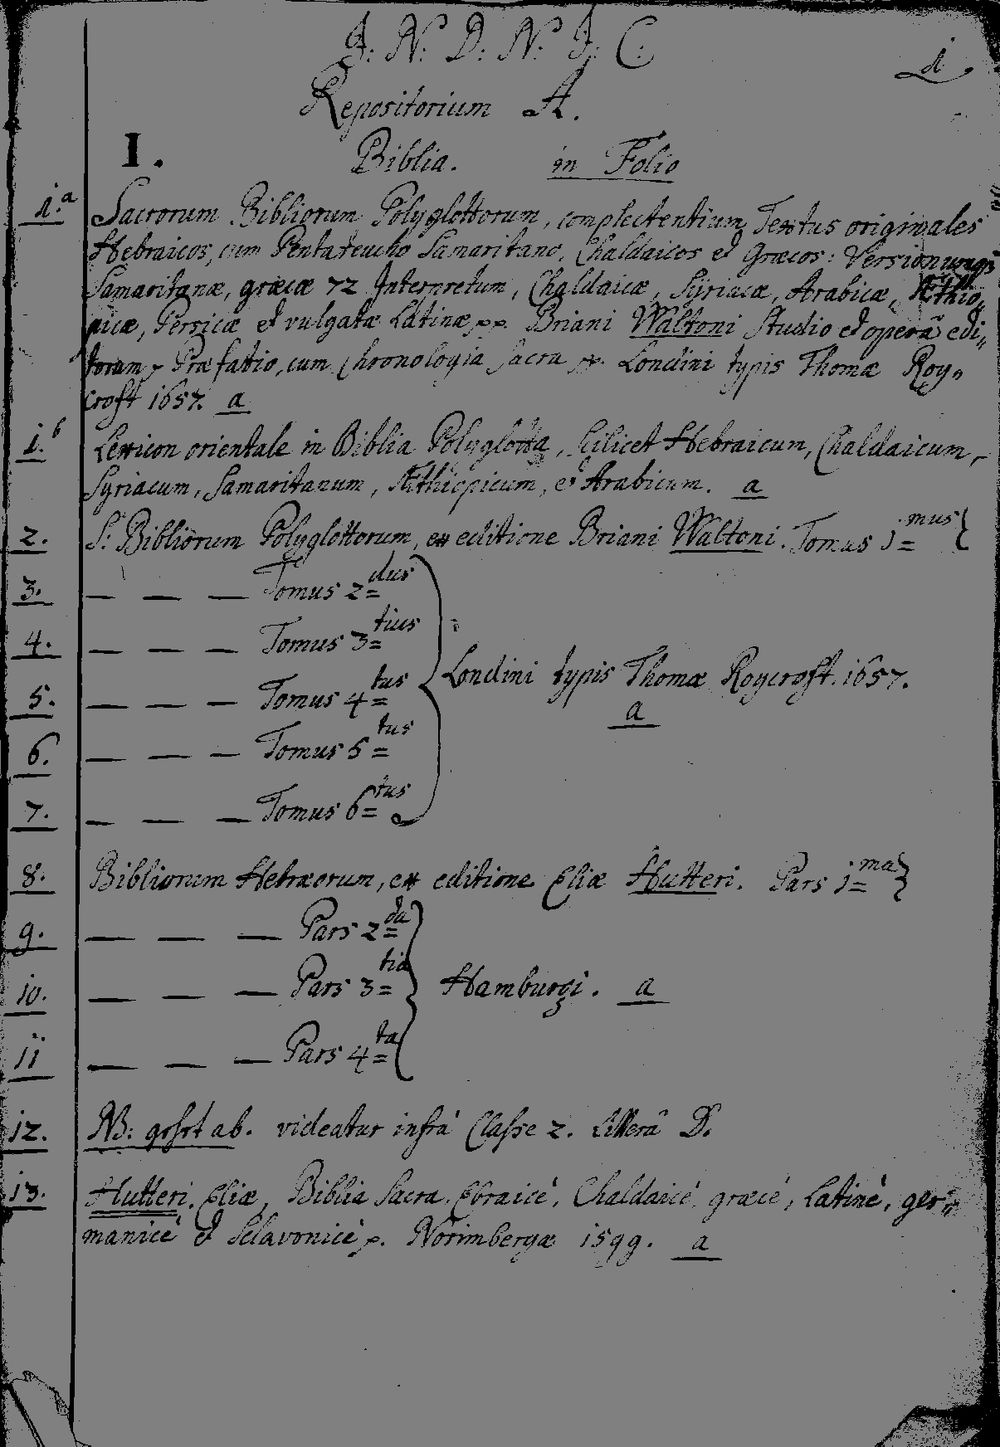 J: N: D: N: J: C:
1
Repositorium A.
I.
Biblia. in Folio
1.a Sacrorum Bibliorum Polyglottorum, complectentium Textus originales
Hebraicos, cum Pentateucho Samaritano, Chaldaicos et Græcos: Versionumqs
Samaritanæ, græcæ 72 Interpretum, Chaldaicæ, Syriacæ, Arabicæ, Æthio„
picæ, Persicæ et vulgatæ Latinæ, Briani Waltoni Studio et operâ edi„
torum Præfatio, cum Chronologia sacra Londini typis Thomæ Roy„
croft 1657. a
1.b Lexicon orientale in Biblia Polyglotta, scilicet Hebraicum, Chaldaicum,
Syriacum, Samaritanum, Æthiopicum, et Arabicum. a
2. S. Bibliorum Polyglottorum, ex editione Briani Waltoni. Tomus j=mus }
3. — — — Tomus 2=dus
4. — — — Tomus 3=tius
5. — — — Tomus 4=tus
Londini typis Thomæ Roycroft. 1657.
a
6. — — — Tomus 5=tus
7. — — — Tomus 6=tus
8. Bibliorum Hebræorum, ex editione Eliæ Hutteri. Pars j=ma }
9. — — — Pars 2=da
10. — — — Pars 3=tia } Hamburgi. a
11 — — — Pars 4=ta
12. NB: ab. videatur infrà Classe 2. Litterâ D.
13. Hutteri, Eliæ, Biblia Sacra, Ebraicè, Chaldaicè, græcè, Latinè, ger„
manicè et Sclavonicè. Norimbergæ 1599. a